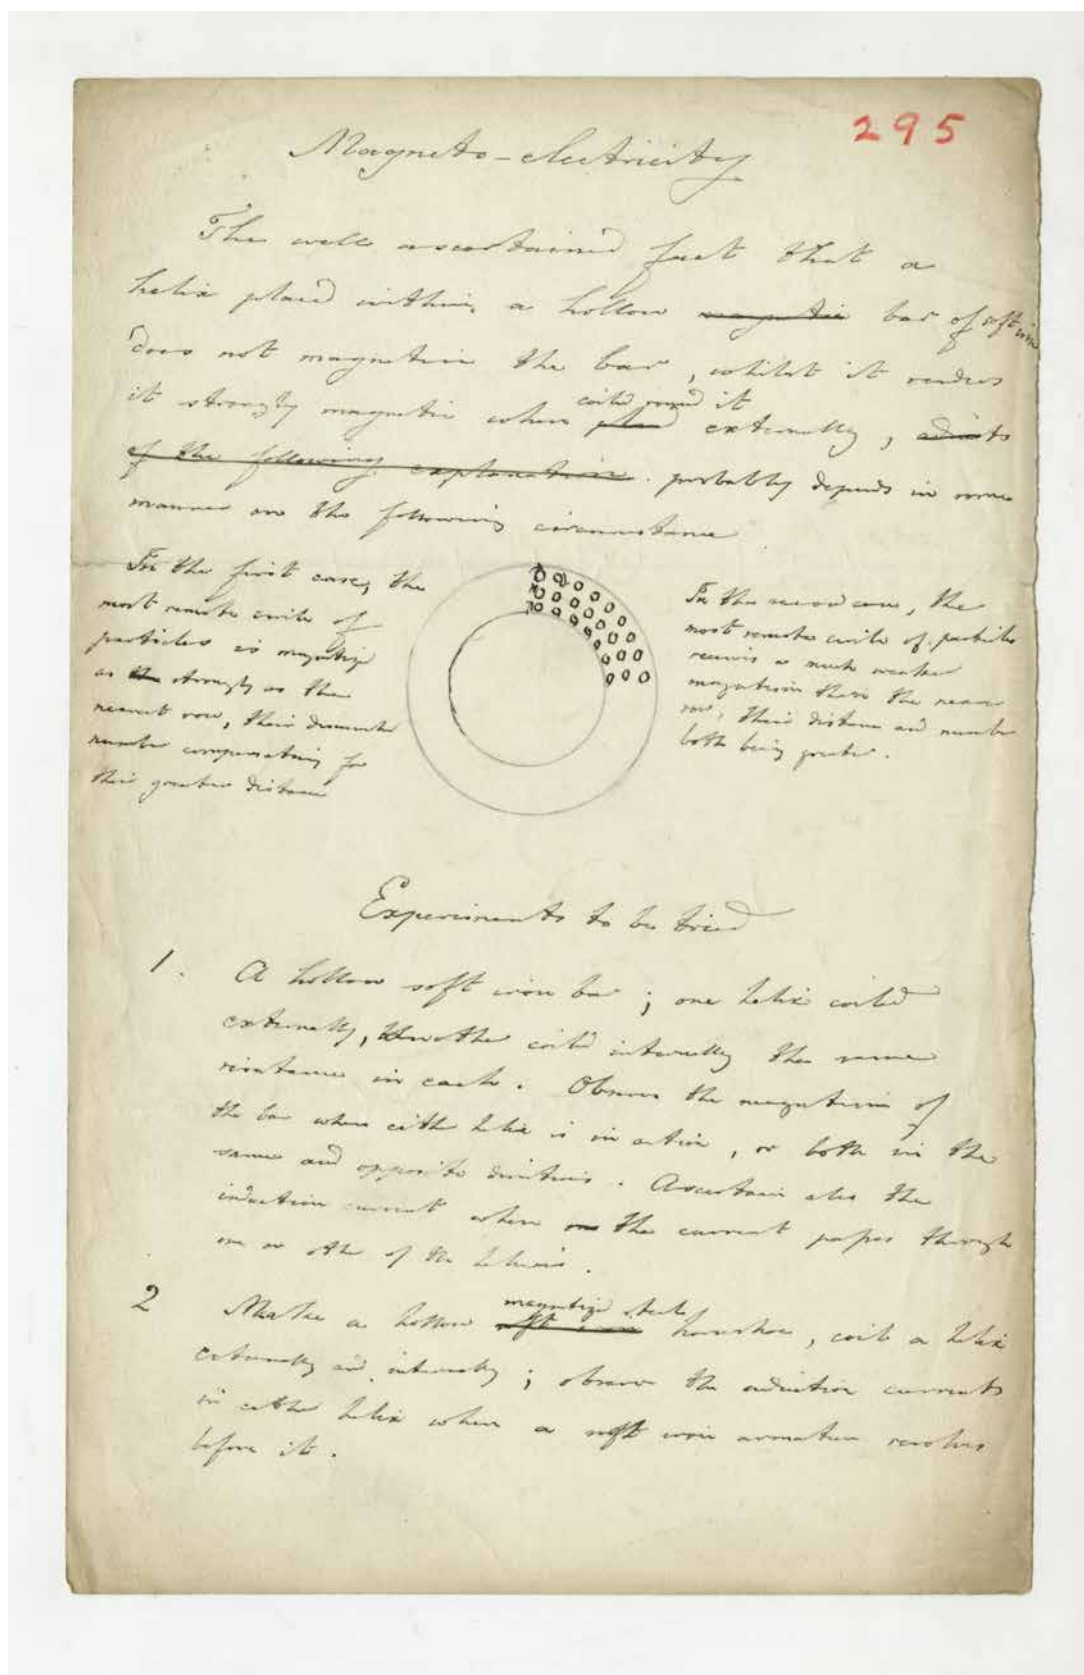 295
Magneto-electricity
The well ascertained fact that a
helix placed within a hollow magnetic bar of soft iron
does not magnetise the bar, whilst it renders
coiled round it
it strongly magnetic when placed externally, admits
of the following explanation. probably depends in some
manner on the following circumstance
In the first case, the
most remote circle of
particles is magnetized
as the strongly as the
nearest row, their diminished
number compensating for
their greater distance
In the second case, the
most remote circle of particles
receives a much weaker
magnetism than the nearer
row, their distance and number
both being greater.
Experiments to be tried
1. A hollow soft iron bar; one helix coiled
externally, another coiled internally the same
resistance in each. Observe the magnetism of
the bar when either helix is in action, or both in the
same and opposite directions. Ascertain also the
induction current when the current passes through
one or other of the helices.
magnetized steel
2 Make a hollow soft iron horseshoe, coil a helix
externally and internally; observe the induction currents
in either helix when a soft iron armature revolves
before it.